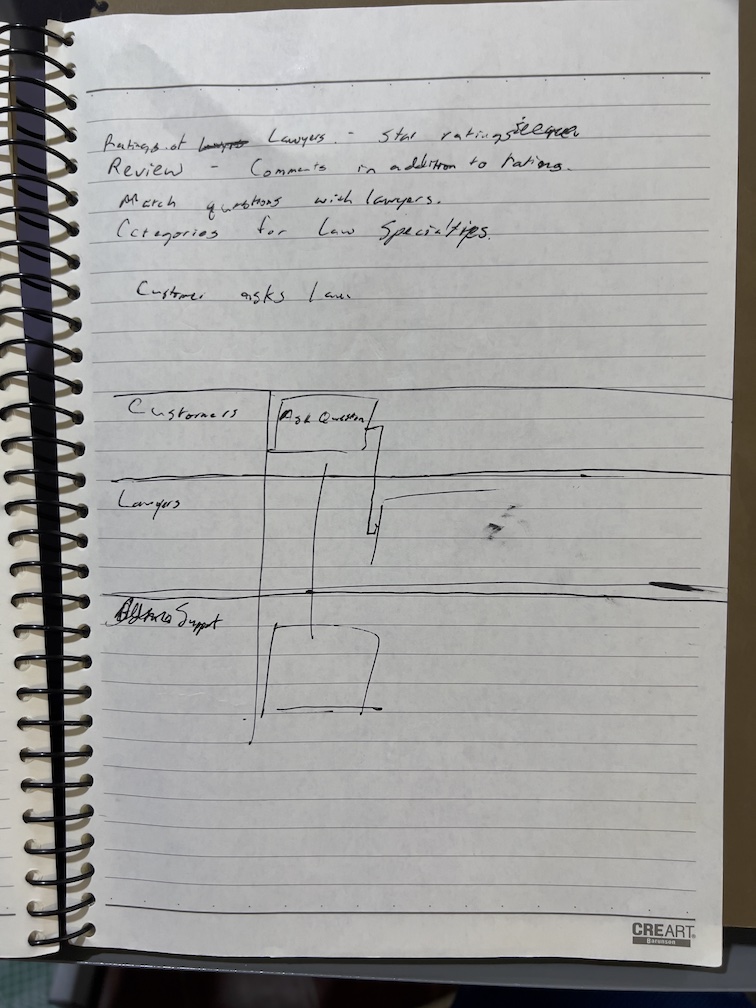 Ratings of Lawyers. - Star ratings
Review - Comments in addition to rating.
Match questions with lawyers.
Categories for Law Specialties.
Customer asks Law
Customers
Ask Question
Lawyers
Support
CREART
Barunson